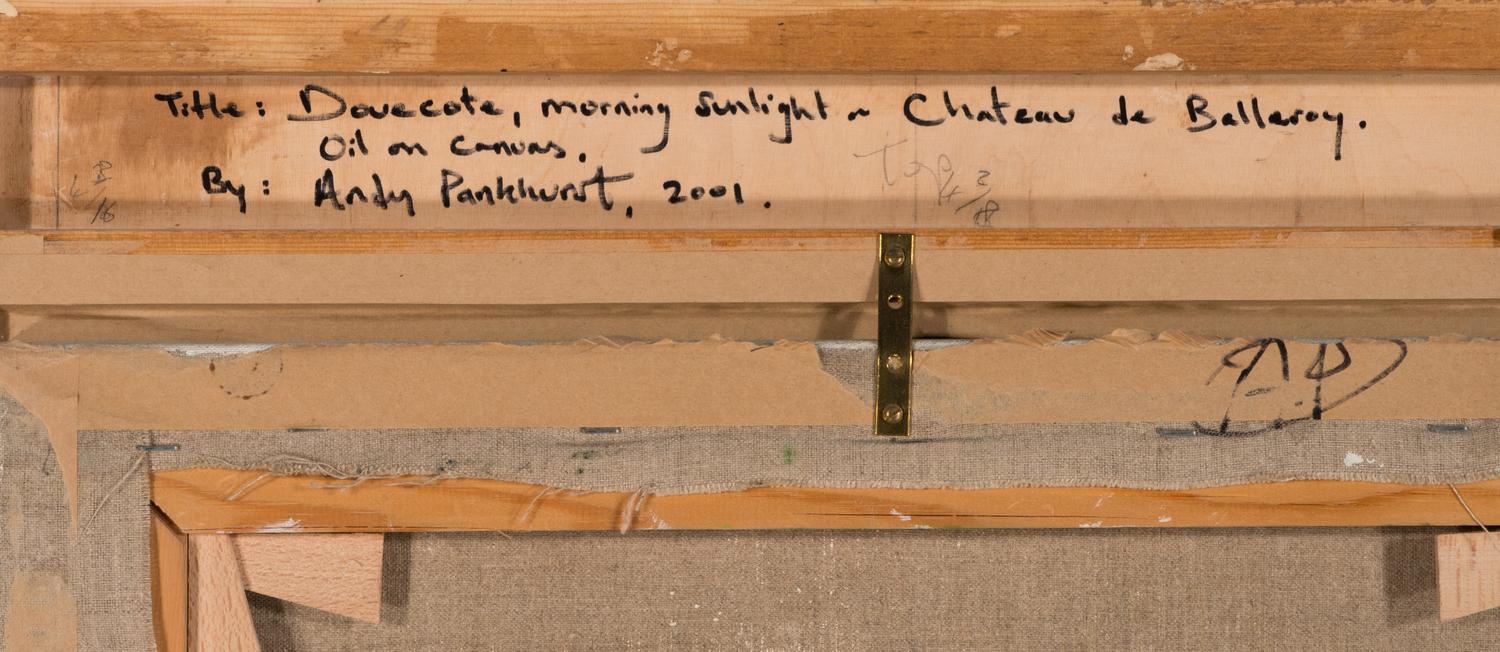 Title: Dovecote, morning sunlight ~ Chateau de Balleroy.
Oil on canvas.
By: Andy Pankhurst, 2001.
Top
A.P